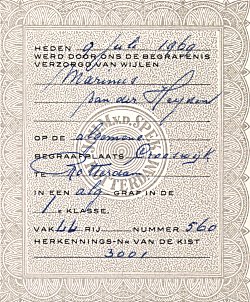 HEDEN 9 Juli 1969
WERD DOOR ONS DE BEGRAFENIS
VERZORGD VAN WIJLEN
Marinus
van der Heyden
OP DE algemene
BEGRAAFPLAATS Crooswijk
TE Rotterdam
IN EEN alg GRAF IN DE
1e KLASSE.
VAK 44 RIJ NUMMER 560
HERKENNINGS-No VAN DE KIST
3001